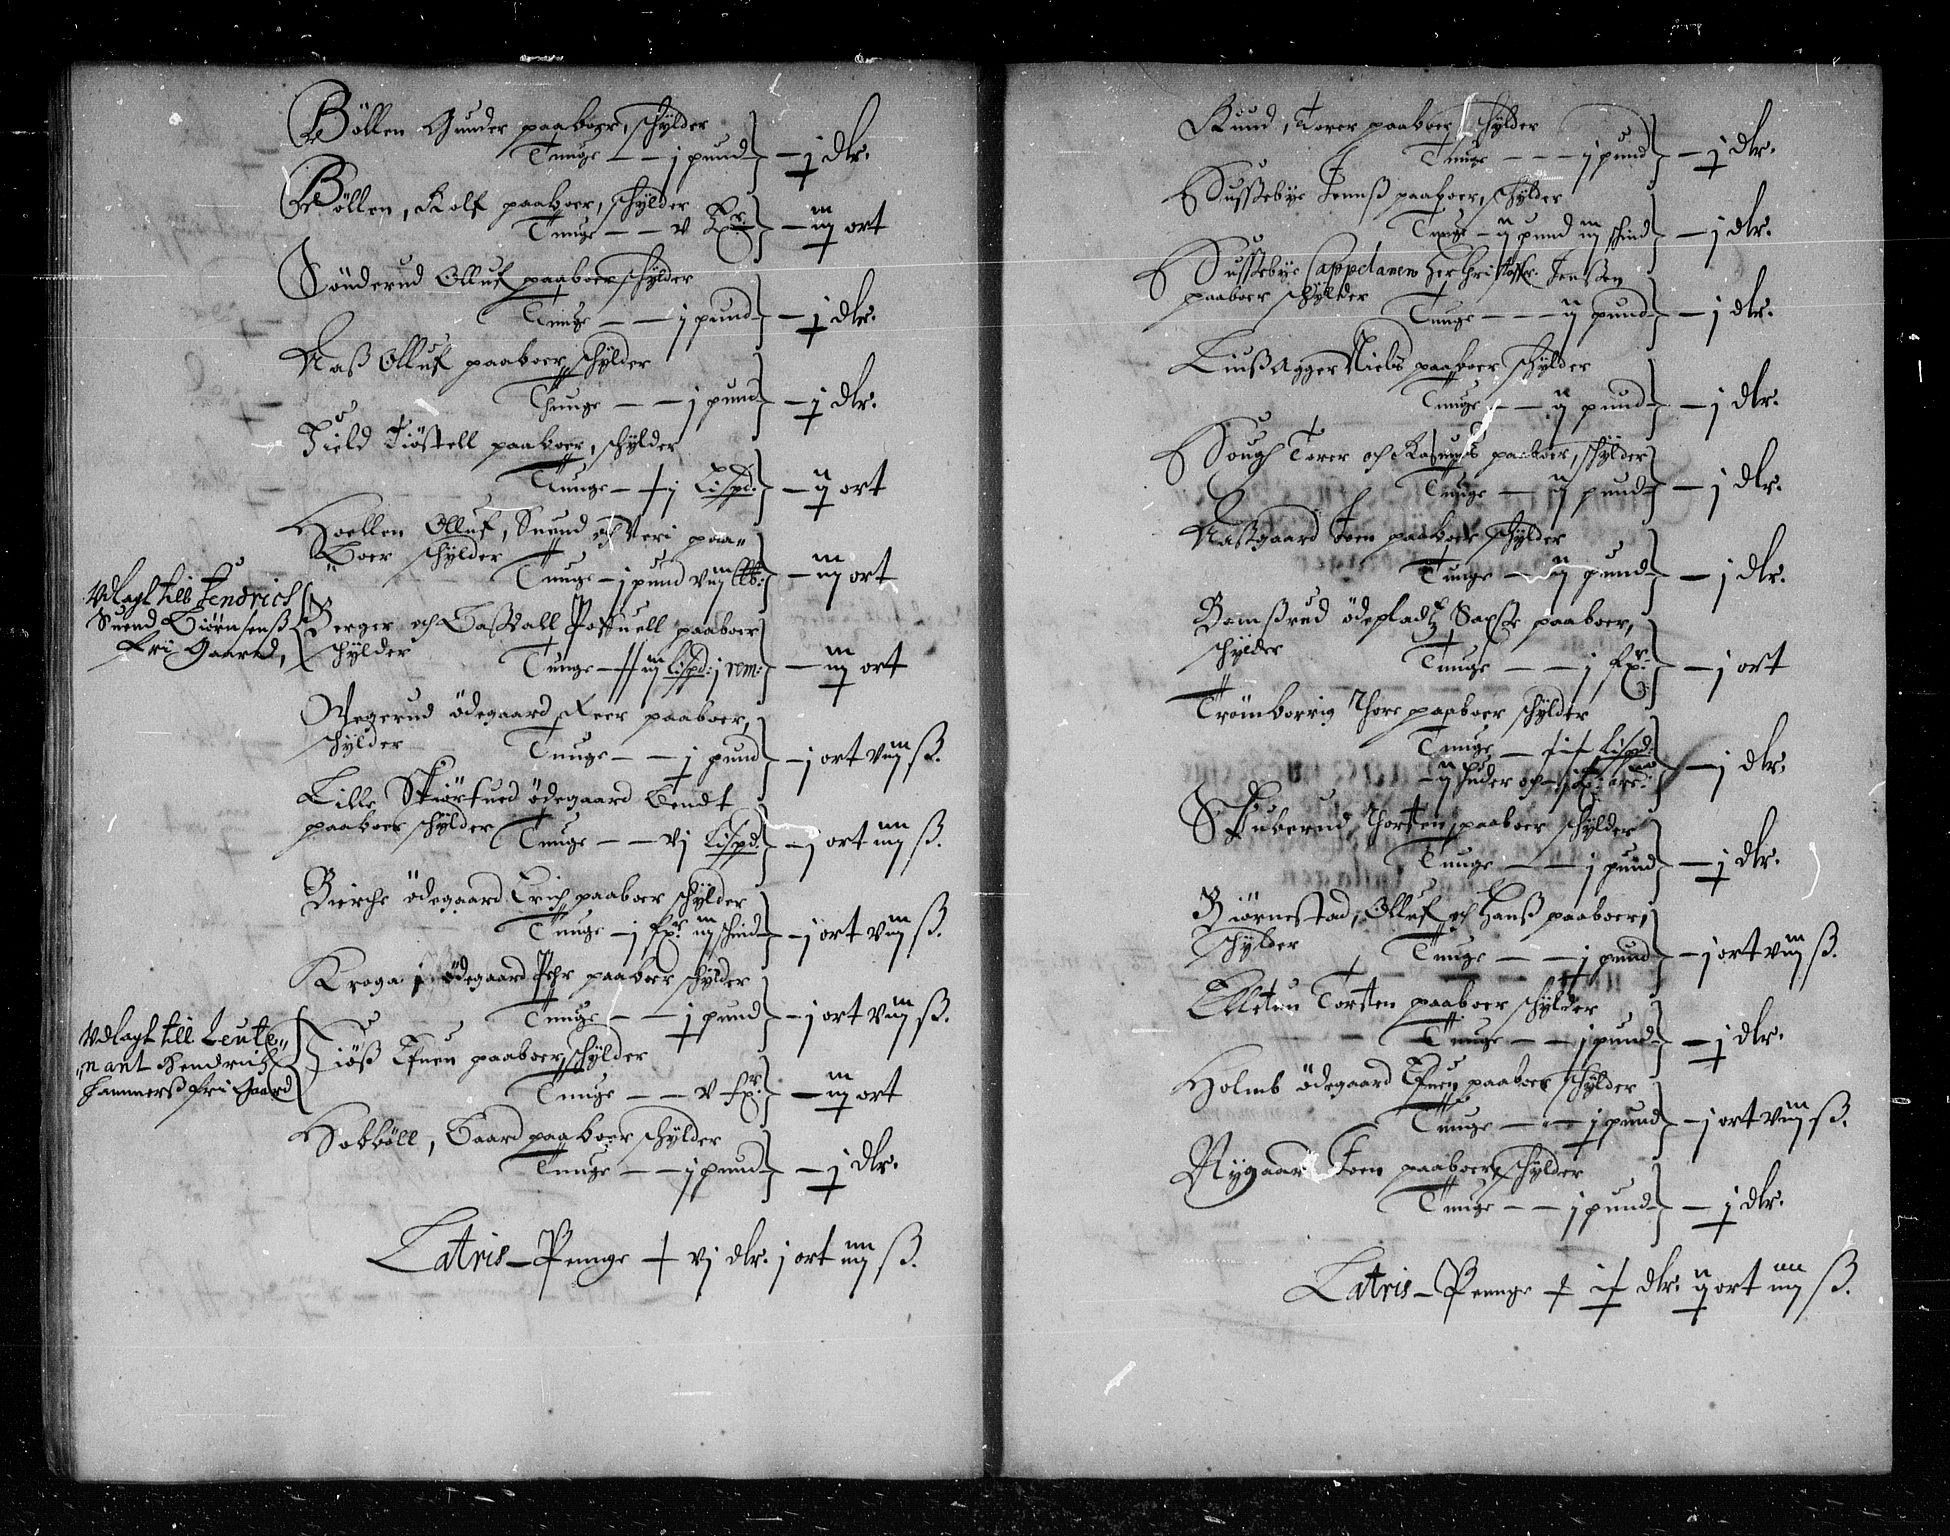 Böllen Gunder paaboer, schylder
Tunge – – j pund – j dlr.
Böllen, Rolf paaboer, schylder
Tunge – – v – iij ort
Sönderud Olluf paaboer schylder
Tunge – – j pund – j dlr.
Naß Olluf paaboer, schylder
Thunge – – j pund – j dlr.
Field Kiöstell paaboer, schylder
Tunge – Lispd: – ij ort
Hoellen Olluf, Suend och Neri paa„
Boer schylder
Tunge – j pund viij – iij ort
Vdlagt till Fendrich
Suend Biörnsenß
Fri Gaard,
Berger och Taßdall paaboer
schylder
Tunge – iij Lispd: j rem: – iij ort
Wegerud ödegaard Peer paaboer,
schylder
Tunge – – j pund – j ort viij ß.
Lille Skiörtued ödegaard Bendt
paaboer schylder
Tunge – – vj Lispd: – j ort iiij ß.
Bierche ödegaard Erich paaboer schylder
Tunge – j iij schind – j ort viij ß.
Kroga ödegaard Pehr paaboer schylder
Tunge – – j pund – j ort viij ß.
Vdlagt till Leute„
„nant Hendrich
Hammerß fri Gaard
Tiöß Efuen paaboer, schylder
Tunge – – v – iij ort
Hobböll, Gaard paaboer schylder
Tunge – – j pund – j dlr.
Latris – Penge vj dlr. j ort iiij ß.
Rund, Torer paaboer, schylder
Tunge – – – j pund – j dlr.
Sußebye Jennß paaboer, schylder
Tunge – ij pund iij schind – j dlr.
Sußebye Cappetanen her Christoffer Jenßen
paaboer schylder
Tunge – – – ij pund – j dlr.
Liußagger Niels paaboer schylder
Tunge – – ij pund – j dlr.
Torer och Rasmuß paaboer, schylder
Tunge – ij pund – j dlr.
Naßgaard Joen paaboer schylder
Tunge – ij pund – j dlr.
Bomßrud ödepladtz paaboer,
schylder
Tunge – – j – j ort
Trömborrig Thore paaboer schylder
Tunge – Lispd:
ij huder och – j dlr.
Skuberud, Thorsten paaboer schylder
Tunge – – j pund – j dlr.
Biörnestad, Olluf och Hanß paaboer,
schylder
Tunge – – j pund – j ort viij ß.
Torsten paaboer schylder
Tunge – – j pund – j dlr.
Holmb ödegaard Efuen paaboer schylder
Tunge – – j pund – j ort viij ß.
Nygaard Joen paaboer schylder
Tunge – – j pund – j dlr.
Latris – Penge dlr. ij ort iiij ß.